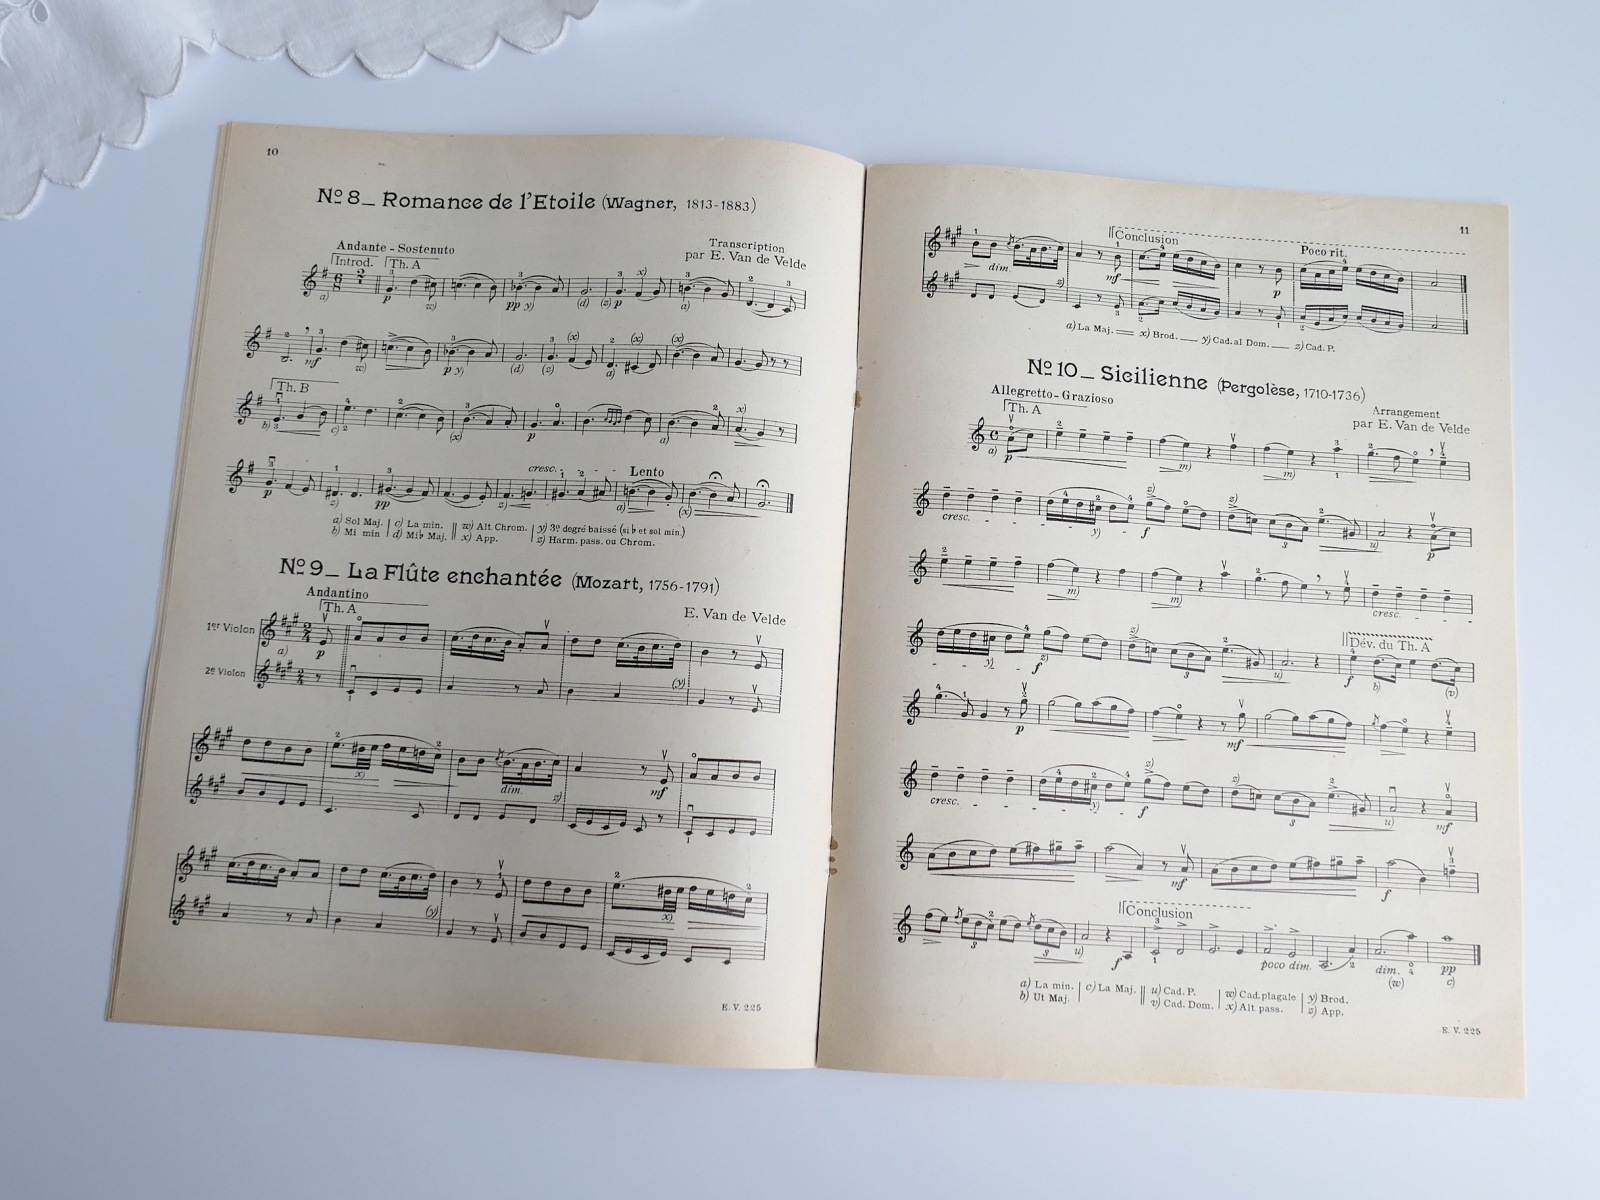 10
Nº 8_ Romance de l'Etoile (Wagner, 1813-1883)
Andante - Sostenuto
Transcription
par E. Van de Velde
Introd. Th. A
Th. B
cresc. Lento
a) Sol Maj. c) La min. w) Alt. Chrom. y) 3º degré baissé (si♭ et sol min.)
b) Mi min d) Mi♭ Maj. x) App. z) Harm. pass. ou Chrom.
Nº 9_ La Flûte enchantée (Mozart, 1756-1791)
Andantino
E. Van de Velde
Th. A
1er Violon
2e Violon
dim.
mf
E. V. 225
11
Conclusion
Poco rit.
dim.
mf
p
a) La Maj. x) Brod. y) Cad. al Dom. z) Cad. P.
Nº 10_ Sicilienne (Pergolèse, 1710-1736)
Allegretto - Grazioso
Arrangement
par E. Van de Velde
Th. A
cresc.
cresc.
Dév. du Th. A
p mf
cresc.
mf f
Conclusion
f poco dim. dim. pp
a) La min. c) La Maj. u) Cad. P. w) Cad. plagale y) Brod.
b) Ut Maj. v) Cad. Dom. x) Alt. pass. z) App.
E. V. 225